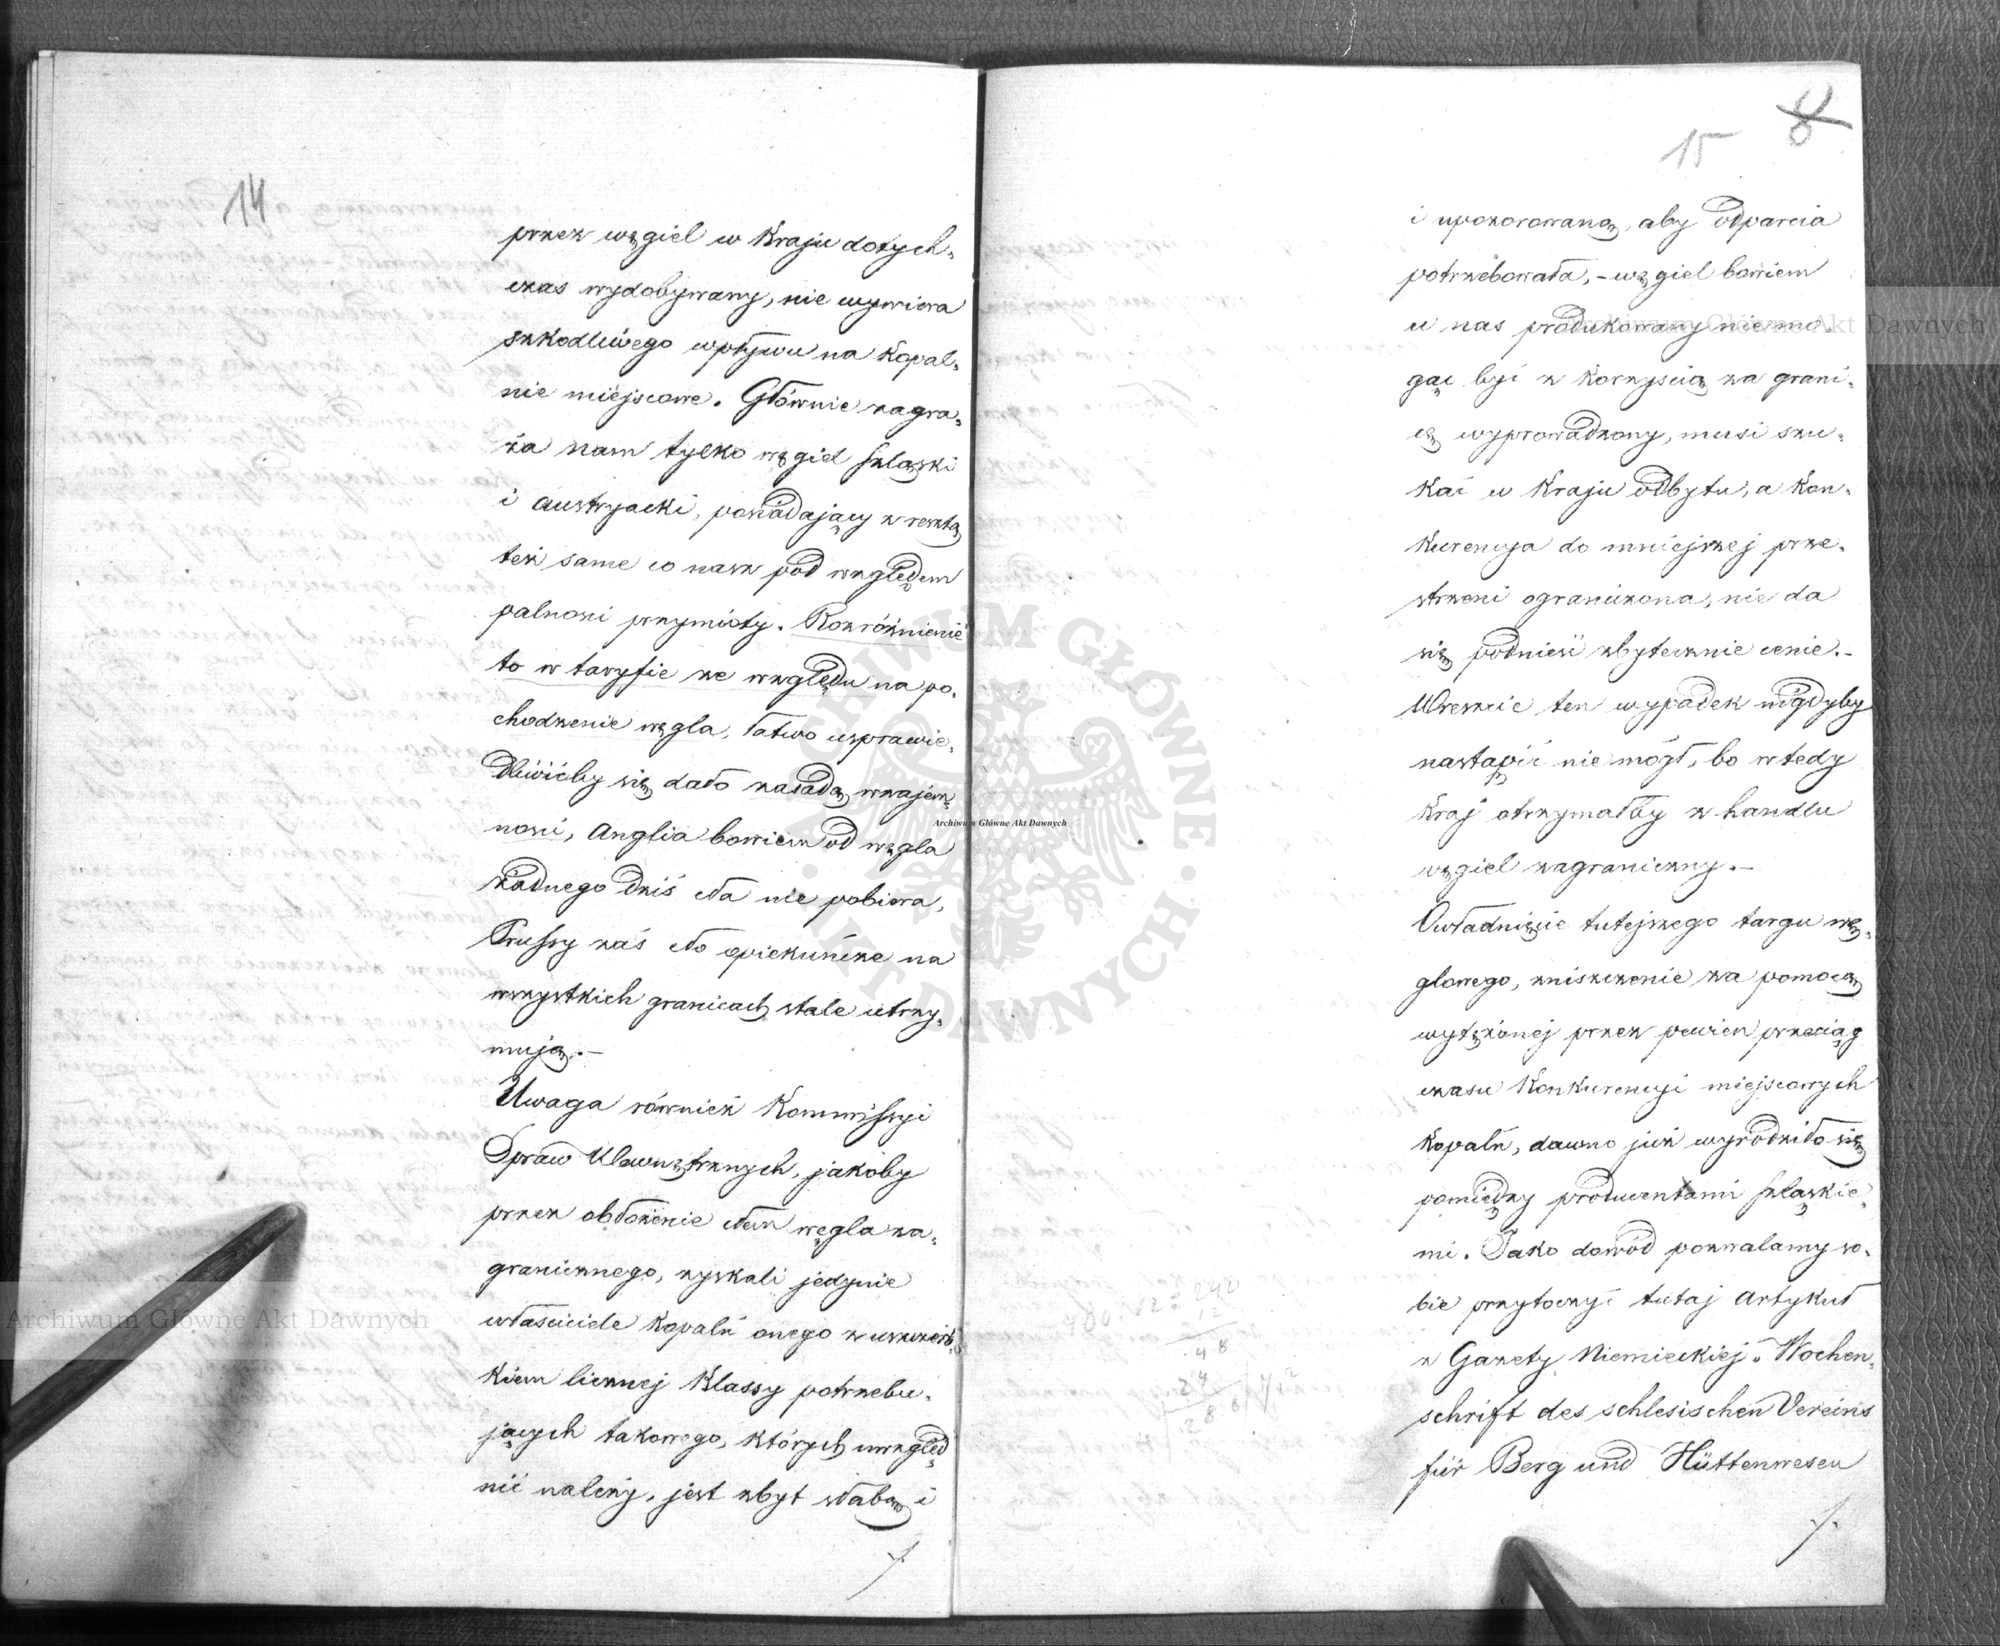 14
przez węgiel w Kraju dotych-
czas wydobywany, nie wywiera
szkodliwego wpływu na Kopal-
nie miejscowe. Głównie zagra-
ża nam tylko węgiel szląski
i austryacki, posiadający zresztą
też same co nasz pod względem
palności przymioty. Rozróżnienie
to w taryfie ze względu na po-
chodzenie węgla, łatwo usprawie-
dliwićby się dało zasadą wzajem-
ności, Anglia bowiem od węgla
żadnego dziś cła nie pobiera,
Prussy zaś cło opiekuńcze na
wszystkich granicach stale utrzy-
mują.-
Uwaga również Kommissyi
Spraw Wewnętrznych, jakoby
przez obłożenie cłem węgla za-
granicznego, zyskali jedynie
właściciele Kopalń onego z uszczerb-
kiem licznej Klassy potrzebu-
jących takowego, których uwzględ
nić należy, jest zbyt słabą i
15
8
i upozorowaną, aby odparcia
potrzebowała, - węgiel bowiem
u nas produkowany nie mo-
gąc być z korzyścią za grani-
cę wyprowadzony, musi szu-
kać w Kraju odbytu, a Kon-
kurencya do mniejszej prze-
strzeni ograniczona, nie da
się podnieść zbytecznie cenie.-
Wreszcie ten wypadek nigdyby
nastąpić nie mógł, bo wtedy
Kraj otrzymałby z handlu
węgiel zagraniczny.-
Owładnięcie tutejszego targu wę-
glowego, zniszczenie za pomocą
wytężonej przez pewien przeciąg
czasu Konkurencyi miejscowych
Kopalń, dawno już wyrodziło się
pomiędzy producentami szląskie-
mi. Jako dowód pozwalamy so-
bie przytoczyć tutaj Artykuł
z Gazety Niemieckiej: Wochen-
schrift des schlesischen Vereins
für Berg und Hüttenwesen
Archiwum Główne Akt Dawnych
Archiwum Główne Akt Dawnych
Archiwum Główne Akt Dawnych
ARCHIWUM GŁÓWNE · AKT DAWNYCH ·